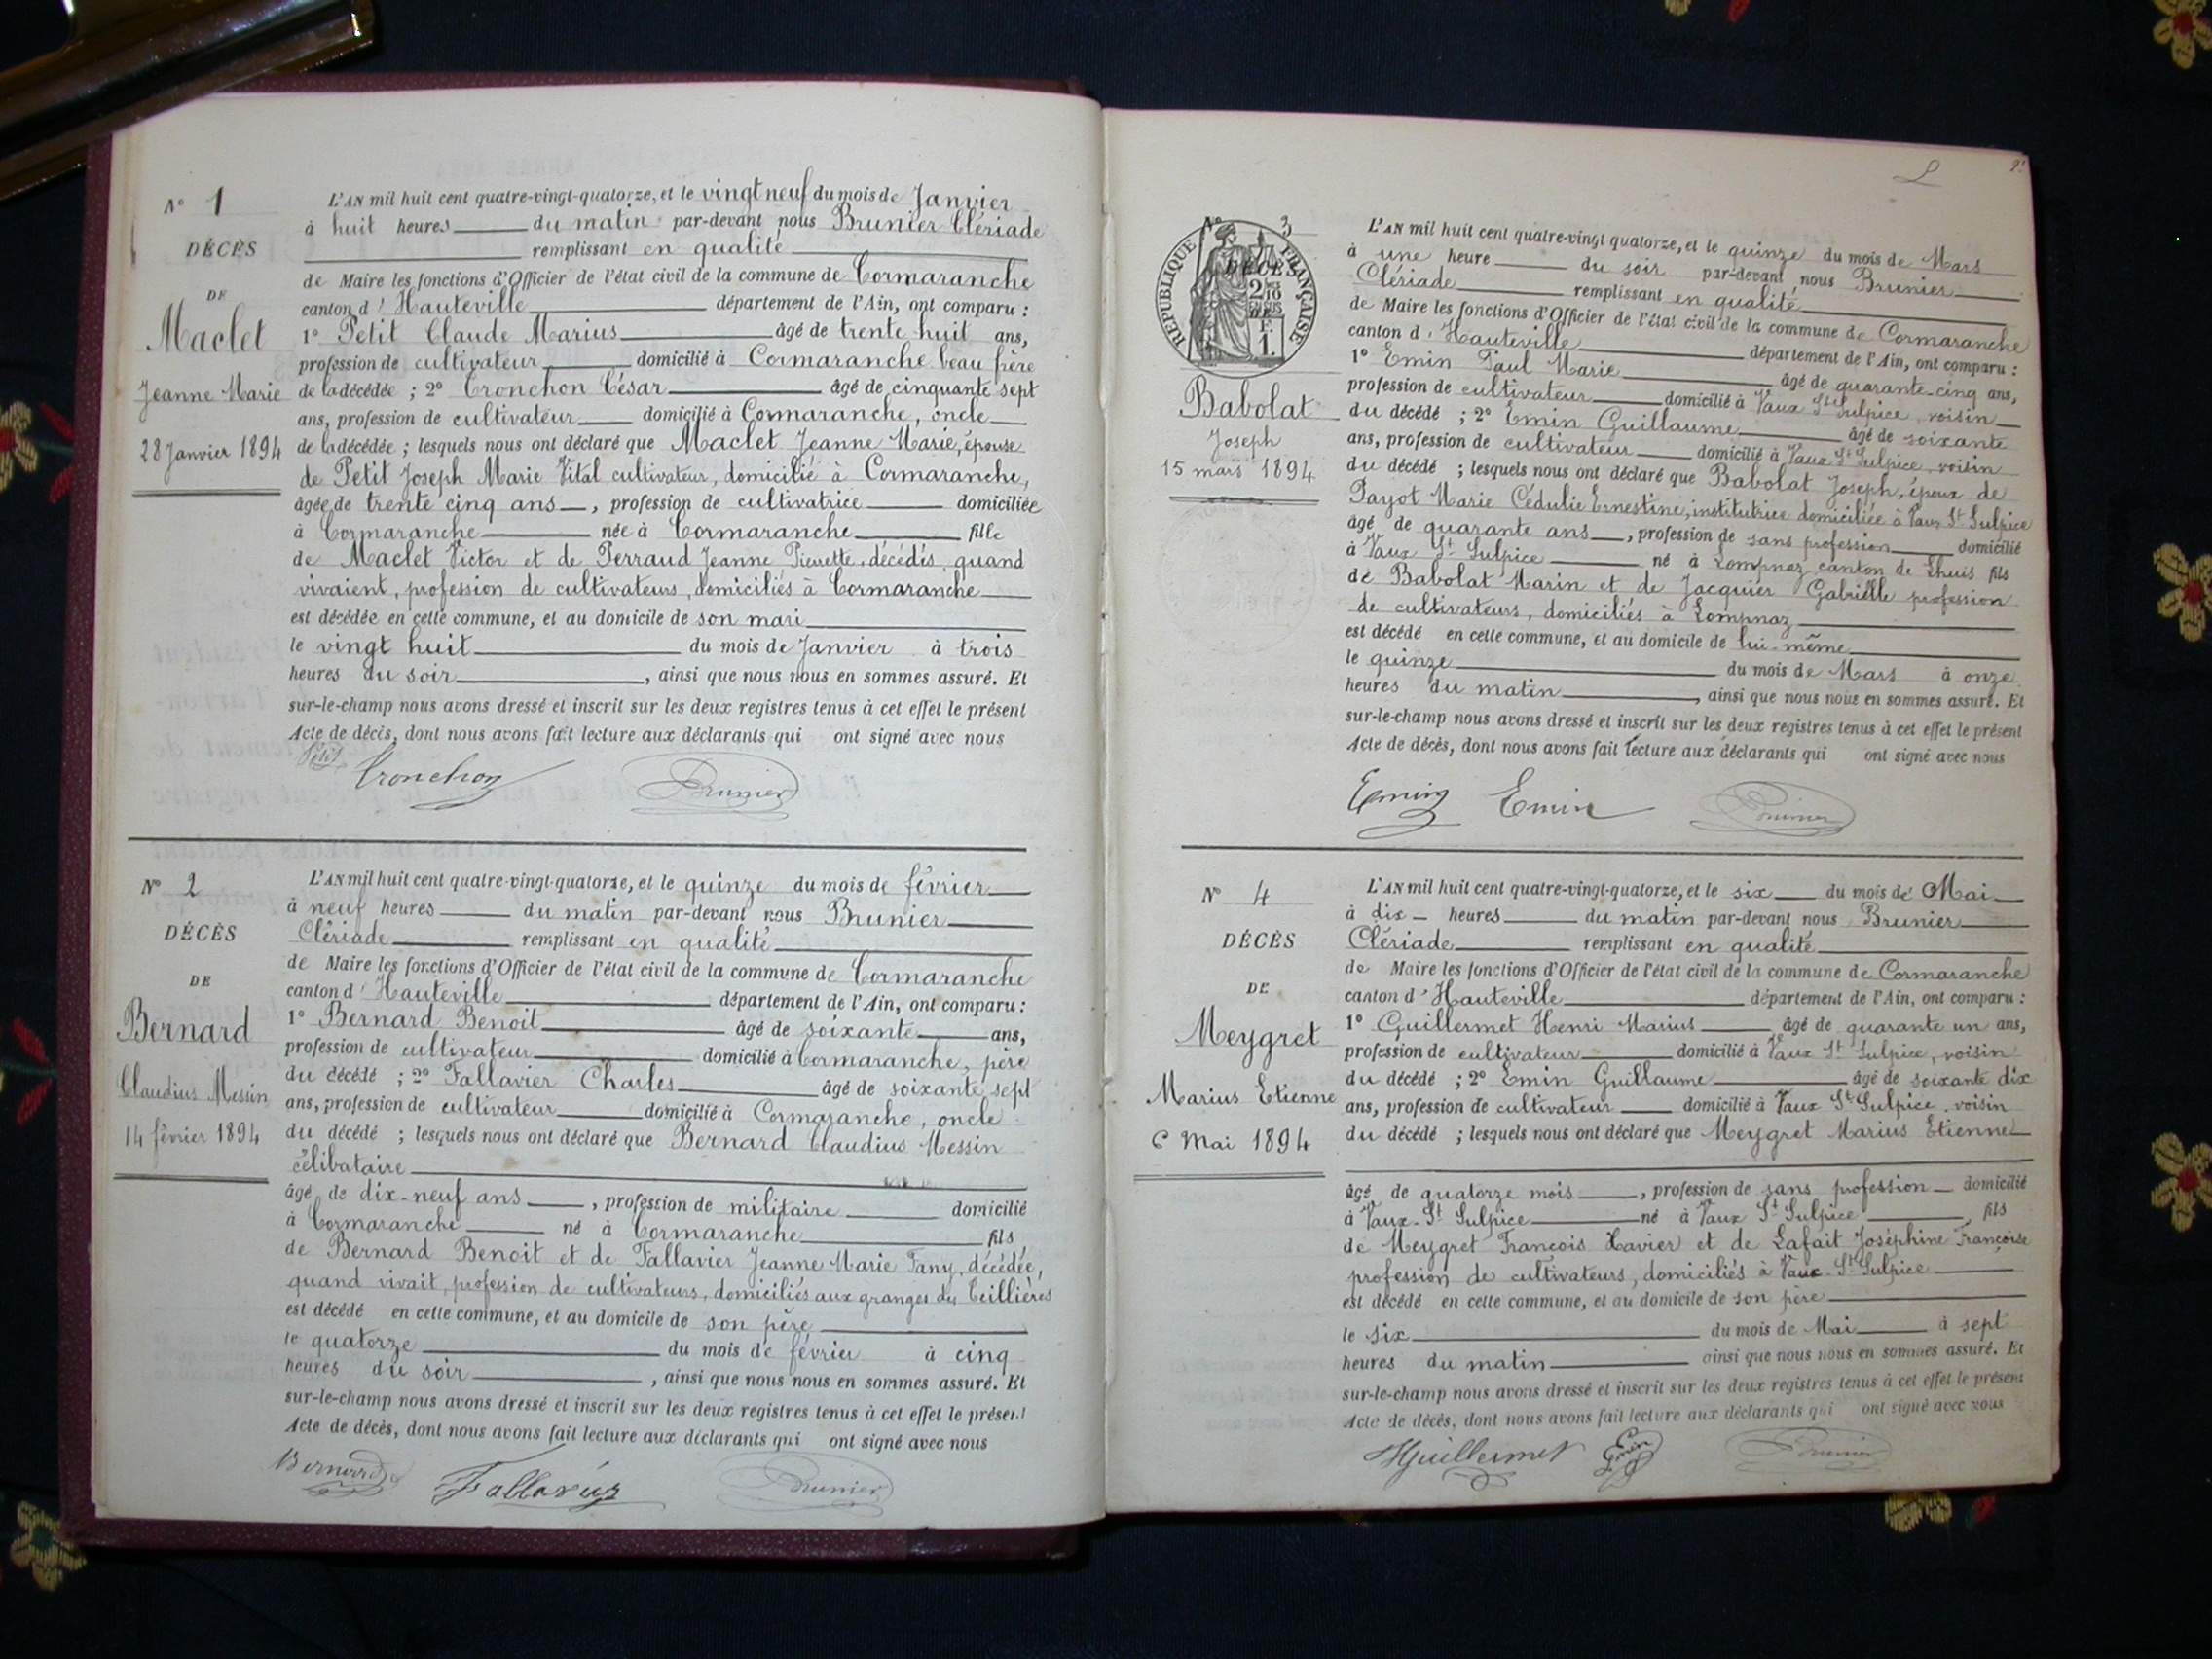 N° 1
DÉCÈS
DE
Maclet
Jeanne Marie
28 Janvier 1894
L'AN mil huit cent quatre-vingt-quatorze, et le vingt neuf du mois de Janvier
à huit heures du matin par-devant nous Brunier Clériade
remplissant en qualité
de Maire les fonctions d'Officier de l'état civil de la commune de Cormaranche
canton d'Hauteville département de l'Ain, ont comparu :
1° Petit Claude Marius âgé de trente huit ans,
profession de cultivateur domicilié à Cormaranche beau frère
de la décédée ; 2° Cronchon César âgé de cinquante sept
ans, profession de cultivateur domicilié à Cormaranche, oncle
de la décédée ; lesquels nous ont déclaré que Maclet Jeanne Marie, épouse
de Petit Joseph Marie Vital cultivateur, domicilié à Cormaranche,
âgée de trente cinq ans, profession de cultivatrice domiciliée
à Cormaranche née à Cormaranche fille
de Maclet Victor et de Perraud Jeanne Pierrette, décédés quand
vivaient, profession de cultivateurs, domiciliés à Cormaranche
est décédée en cette commune, et au domicile de son mari
le vingt huit du mois de Janvier à trois
heures du soir, ainsi que nous nous en sommes assuré. Et
sur-le-champ nous avons dressé et inscrit sur les deux registres tenus à cet effet le présent
Acte de décès, dont nous avons fait lecture aux déclarants qui ont signé avec nous
Petit Cronchon Brunier
N° 2
DÉCÈS
DE
Bernard
Claudius Messin
14 février 1894
L'AN mil huit cent quatre-vingt-quatorze, et le quinze du mois de février
à neuf heures du matin par-devant nous Brunier
Clériade remplissant en qualité
de Maire les fonctions d'Officier de l'état civil de la commune de Cormaranche
canton d'Hauteville département de l'Ain, ont comparu :
1° Bernard Benoit âgé de soixante ans,
profession de cultivateur domicilié à Cormaranche, père
du décédé ; 2° Fallavier Charles âgé de soixante sept
ans, profession de cultivateur domicilié à Cormaranche, oncle
du décédé ; lesquels nous ont déclaré que Bernard Claudius Messin
célibataire
âgé de dix-neuf ans, profession de militaire domicilié
à Cormaranche né à Cormaranche fils
de Bernard Benoit et de Fallavier Jeanne Marie Fany, décédée,
quand vivait, profession de cultivateurs, domiciliés aux granges des Ceillières
est décédé en cette commune, et au domicile de son père
le quatorze du mois de février à cinq
heures du soir, ainsi que nous nous en sommes assuré. Et
sur-le-champ nous avons dressé et inscrit sur les deux registres tenus à cet effet le présent
Acte de décès, dont nous avons fait lecture aux déclarants qui ont signé avec nous
Bernard Fallavier Brunier
2
N° 3
RÉPUBLIQUE FRANÇAISE
DÉCÈS
Babolat
Joseph
15 mars 1894
L'AN mil huit cent quatre-vingt quatorze, et le quinze du mois de Mars
à une heure du soir par-devant nous Brunier
Clériade remplissant en qualité
de Maire les fonctions d'Officier de l'état civil de la commune de Cormaranche
canton d'Hauteville département de l'Ain, ont comparu :
1° Emin Paul Marie âgé de quarante-cinq ans,
profession de cultivateur domicilié à Vaux St Sulpice, voisin
du décédé ; 2° Emin Guillaume âgé de soixante
ans, profession de cultivateur domicilié à Vaux St Sulpice, voisin
du décédé ; lesquels nous ont déclaré que Babolat Joseph, époux de
Payot Marie Cédulie Ernestine, institutrice domiciliée à Vaux St Sulpice
âgé de quarante ans, profession de sans profession domicilié
à Vaux St Sulpice né à Lompnaz canton de Lhuis fils
de Babolat Marin et de Jacquier Gabrielle profession
de cultivateurs, domiciliés à Lompnaz
est décédé en cette commune, et au domicile de lui-même
le quinze du mois de Mars à onze
heures du matin, ainsi que nous nous en sommes assuré. Et
sur-le-champ nous avons dressé et inscrit sur les deux registres tenus à cet effet le présent
Acte de décès, dont nous avons fait lecture aux déclarants qui ont signé avec nous
Emin Emin Brunier
N° 4
DÉCÈS
DE
Meygret
Marius Etienne
6 Mai 1894
L'AN mil huit cent quatre-vingt-quatorze, et le six du mois de Mai
à dix heures du matin par-devant nous Brunier
Clériade remplissant en qualité
de Maire les fonctions d'Officier de l'état civil de la commune de Cormaranche
canton d'Hauteville département de l'Ain, ont comparu :
1° Guillermet Henri Marius âgé de quarante un ans,
profession de cultivateur domicilié à Vaux St Sulpice, voisin
du décédé ; 2° Emin Guillaume âgé de soixante dix
ans, profession de cultivateur domicilié à Vaux St Sulpice voisin
du décédé ; lesquels nous ont déclaré que Meygret Marius Etienne
âgé de quatorze mois, profession de sans profession domicilié
à Vaux-St Sulpice né à Vaux St Sulpice, fils
de Meygret François Xavier et de Lafait Joséphine Françoise
profession de cultivateurs, domiciliés à Vaux-St Sulpice
est décédé en cette commune, et au domicile de son père
le six du mois de Mai à sept
heures du matin ainsi que nous nous en sommes assuré. Et
sur-le-champ nous avons dressé et inscrit sur les deux registres tenus à cet effet le présent
Acte de décès, dont nous avons fait lecture aux déclarants qui ont signé avec nous
HGuillermet Emin Brunier